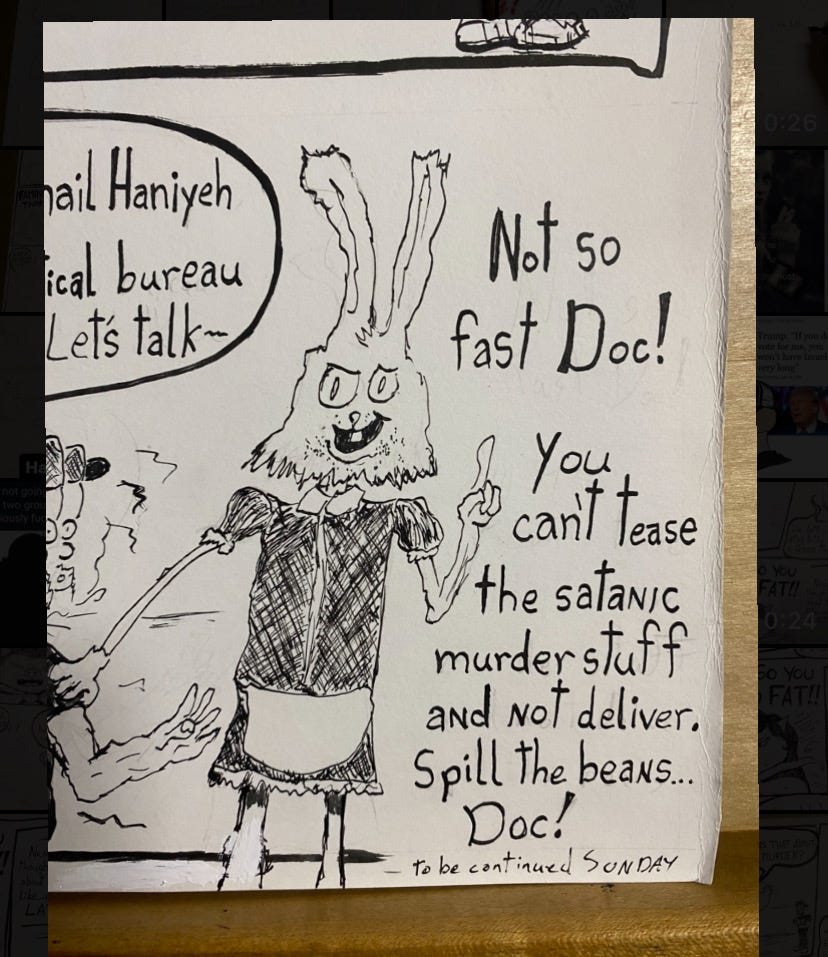 mail Haniyeh
ical bureau
Let's talk~
Not so
fast Doc!
You
can't tease
the satanic
murder stuff
and not deliver.
Spill the beans...
Doc!
to be continued SUNDAY
0:26
Trump: "If you d
vote for me, you
won't have Israel
very long"
0:24
SO YOU
FAT!!